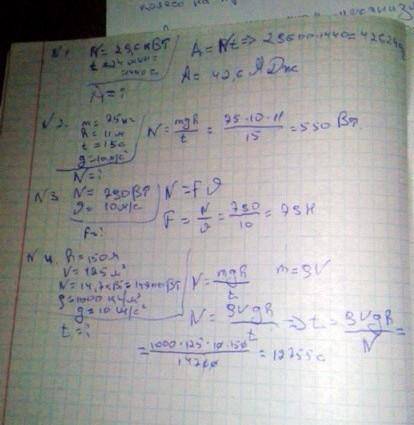 N1. N = 29,6 кВт
t = 24 мин =
= 1440 с
A = ?
A = Nt => 29600·1440 = 42624
A = 42,6 МДж
N2. m = 75 кг
h = 11 м
t = 15 с
g = 10 м/с²
N = ?
N = mgh/t = 75·10·11/15 = 550 Вт
N3. N = 790 Вт
υ = 10 м/с
F = ?
N = Fυ
F = N/υ = 790/10 = 79 Н
N4. h = 150 м
V = 125 м³
N = 14,7 кВт = 14700 Вт
ρ = 1000 кг/м³
g = 10 м/с²
t = ?
N = mgh/t m = ρV
N = ρVgh/t => t = ρVgh/N =
= 1000·125·10·150/14700 = 12755 с